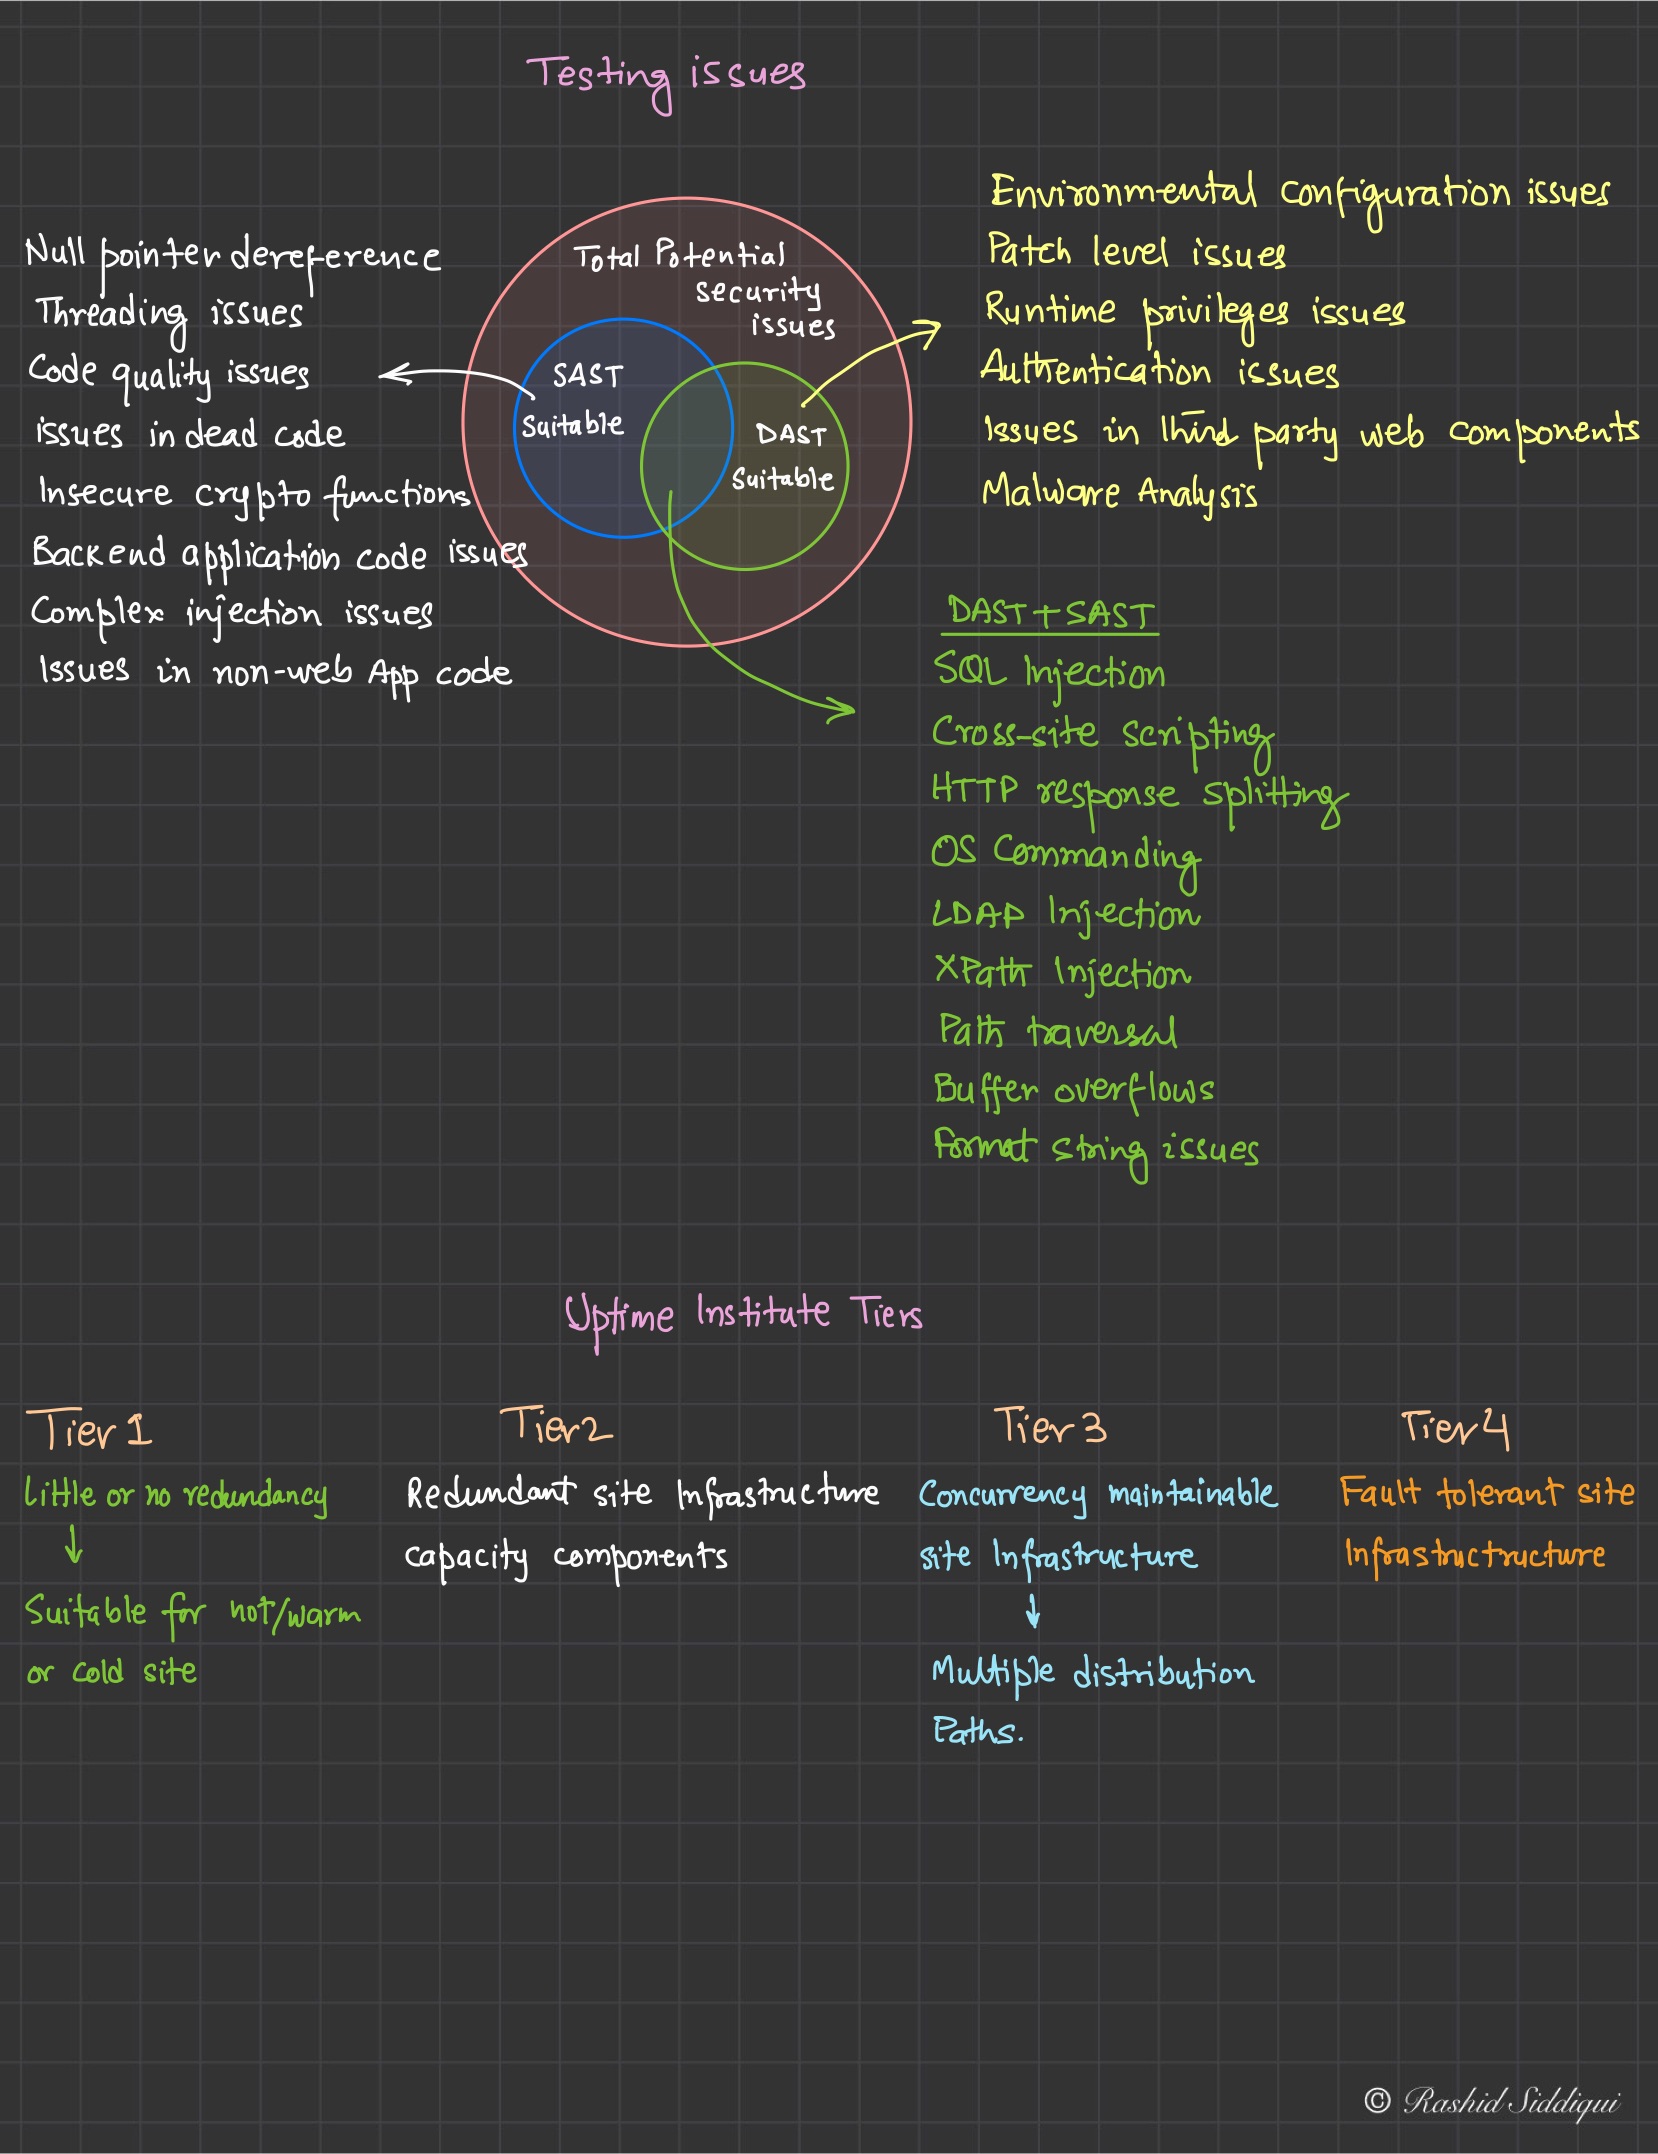 Testing issues
Total Potential
security
issues
SAST
Suitable
DAST
Suitable
Null pointer dereference
Threading issues
Code quality issues
issues in dead code
Insecure crypto functions
Backend application code issues
Complex injection issues
Issues in non-web App code
Environmental configuration issues
Patch level issues
Runtime privileges issues
Authentication issues
Issues in third party web components
Malware Analysis
DAST+SAST
SQL Injection
Cross-site scripting
HTTP response splitting
OS Commanding
LDAP Injection
XPath Injection
Path traversal
Buffer overflows
Format string issues
Uptime Institute Tiers
Tier 1
Little or no redundancy
↓
Suitable for hot/warm
or cold site
Tier 2
Redundant site Infrastructure
capacity components
Tier 3
Concurrency maintainable
site Infrastructure
↓
Multiple distribution
Paths.
Tier 4
Fault tolerant site
Infrastructructure
© Rashid Siddiqui